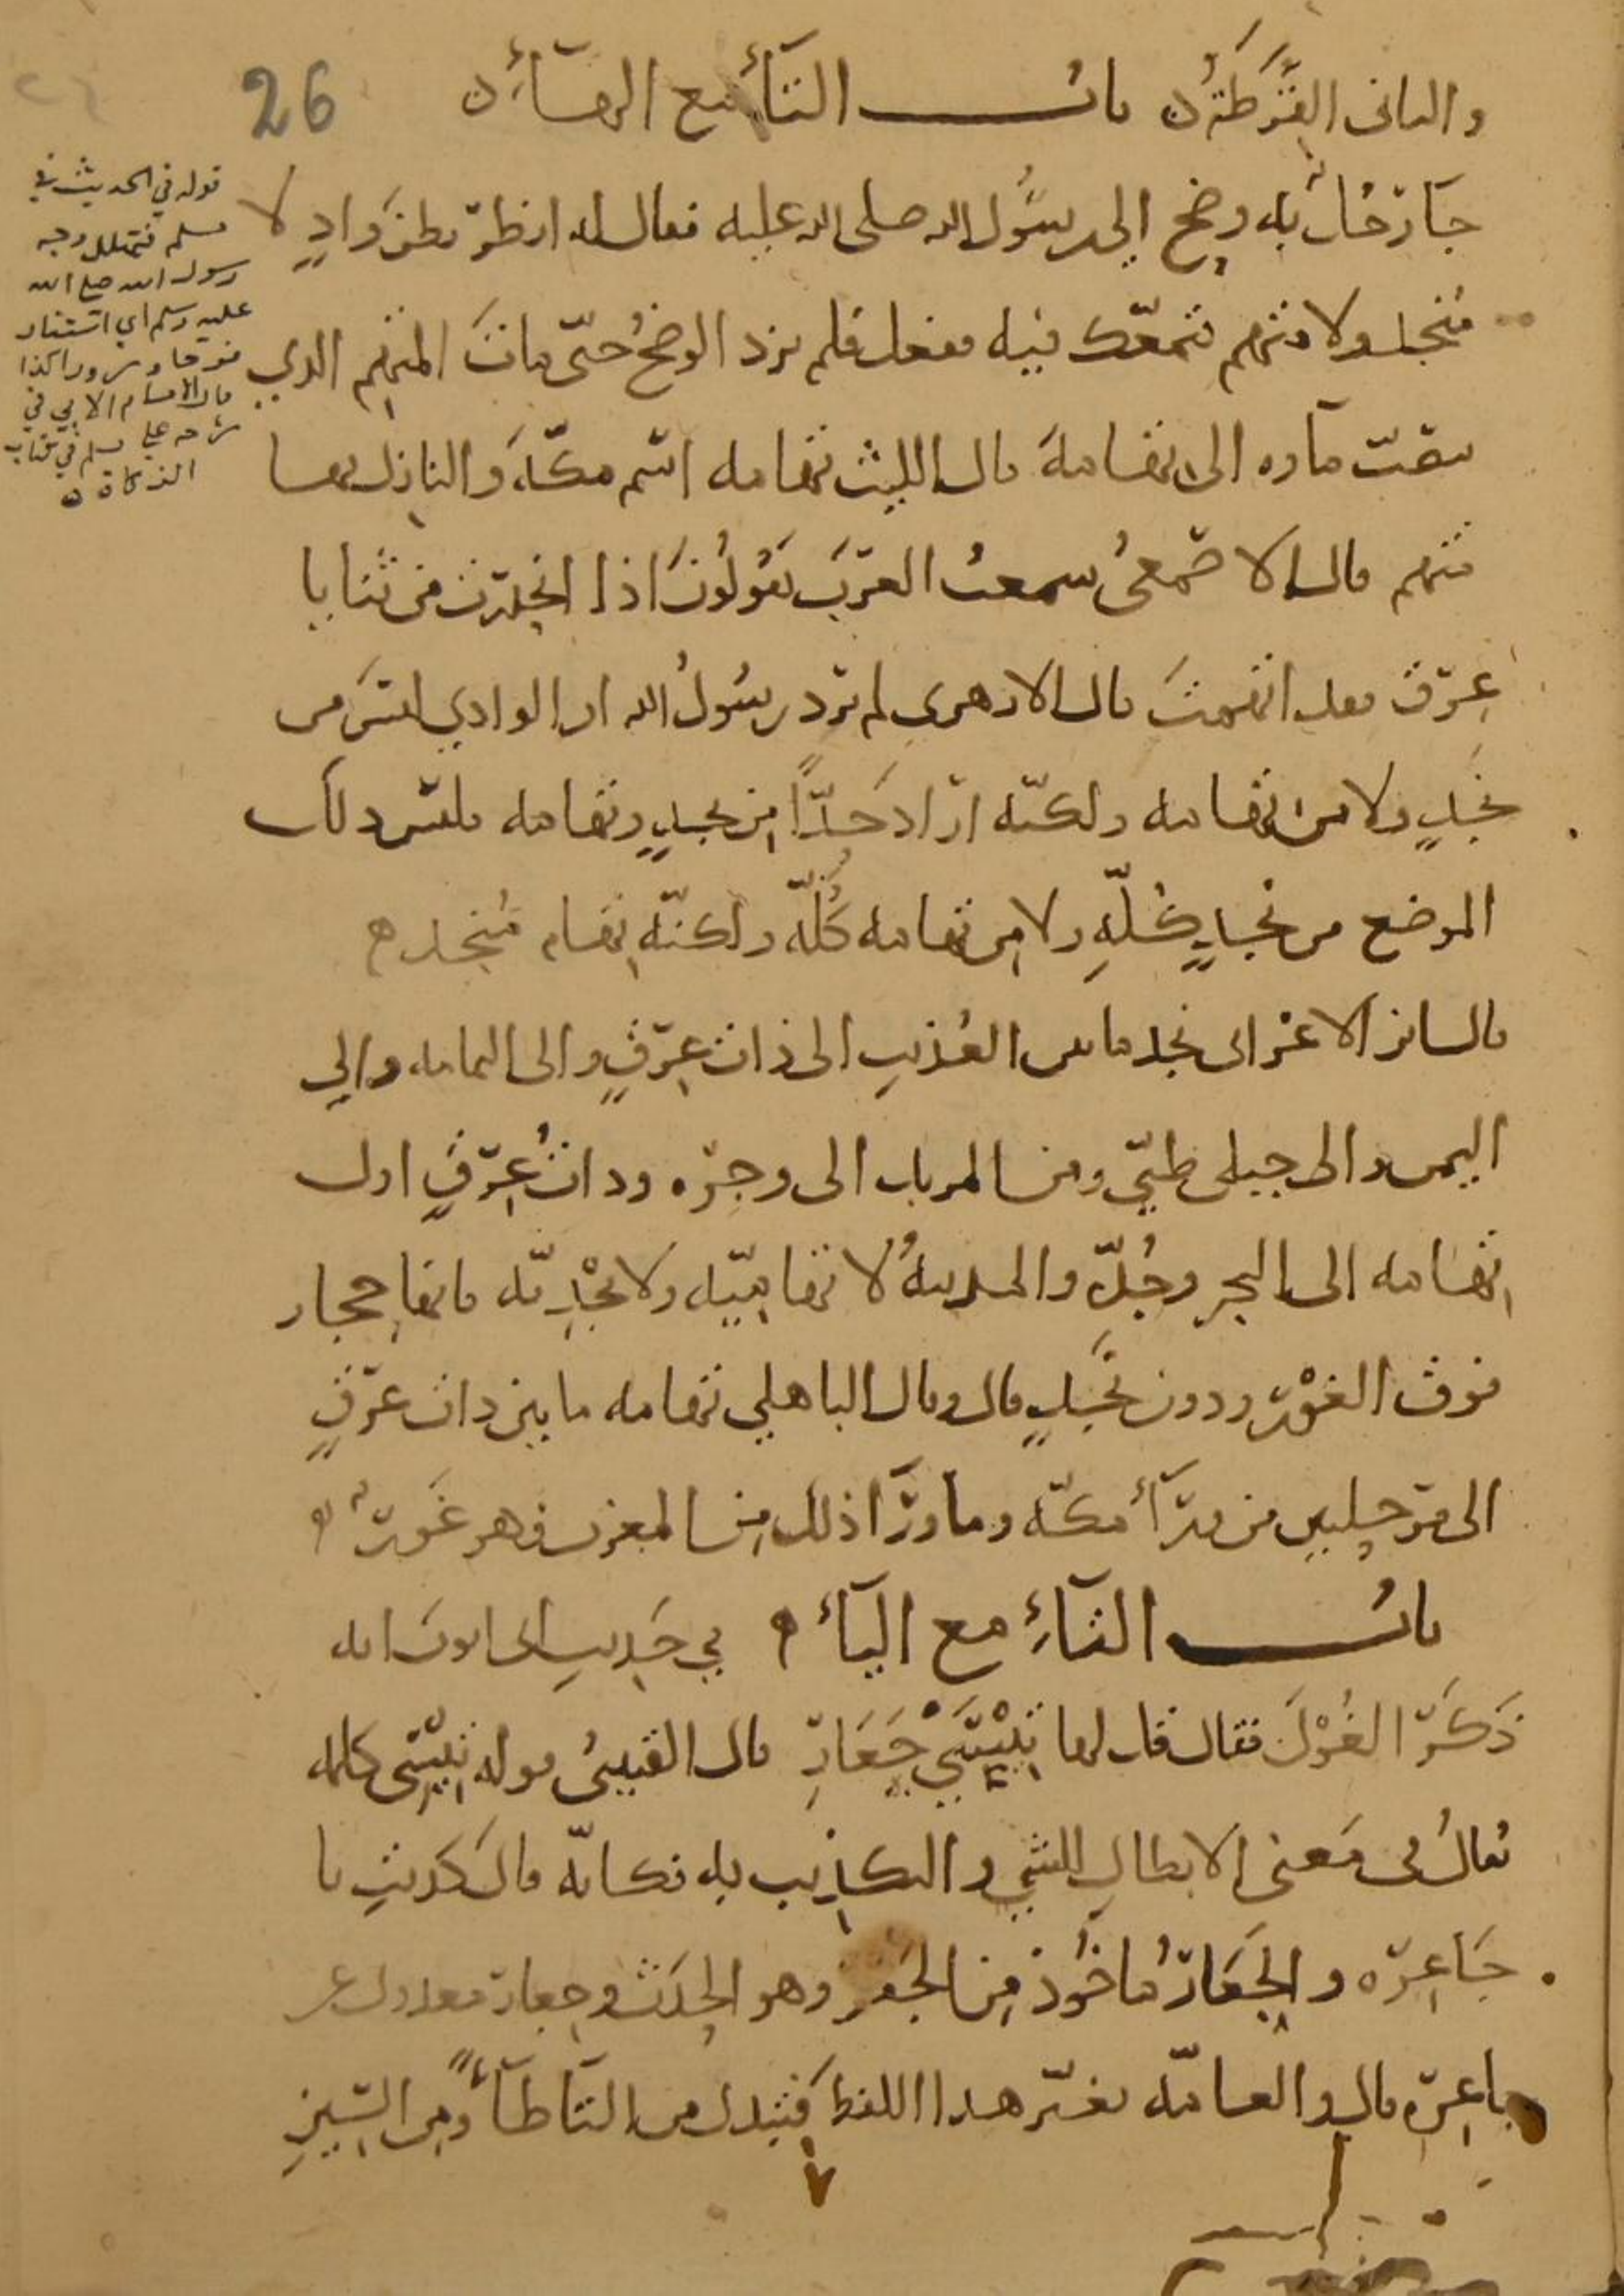 والثاني القَرَطَةُ ن باب التاء مع الهاء ن
26
جاء رجل به وضح إلى رسول الله صلى الله عليه فقال له انظر بطن وادٍ لا
مُنجد ولا متهم فتمعّك فيه ففعل فلم يزد الوضحُ حتّى مات المتهم الذي
ينصبّ ماءه الى تهامة قال الليث تهامه اسم مكّة والنازل بها
متهم قال الاصمعىُ سمعتُ العرَبَ يقولونَ اذا انحدرت من ثنايا
عِرق فقد اتهمتَ قال الازهرى لم يرد رسُولُ الله ان الوادي ليسَ من
نجدٍ ولا من تهامه ولكنّه اراد حدًّا من نجدٍ وتهامه فليس ذلك
الموضع من نجدٍ كلّهِ ولا من تهامه كلّه ولكنّه تهام مُنجد ه
قال ابن الاعرابى نجد ما بين العُذيبِ الى ذات عِرقٍ والى اليمامه والي
اليمن والى جبلى طيّي ومن المربد الى وجره وذات عِرقٍ اول
تهامه الى البحر وجُدّه والمدينهُ لا تهاميّه ولا نجْدِيّه فانها حجاز
فوق الغوْر ودون نجدٍ قال وقال الباهلي تهامه ما بين ذات عرقٍ
الى مرحلتين من ورآءِ مكّه وما ورآ ذلك من المغرب فهو غَور ه
باب التاءِ مع الياء ه في حَديث ابى ايوب انه
ذَكَرَ الغُوْلَ فقال قل لها تِيْسِي جَعَارِ قال القتيبىُ قوله تِيْسى كلمه
تقالُ فى معنى الابطالِ للشي والتكذيب به فكانّه قال كذبتِ يا
جَاعِره والجَعَارُ ماخُوذ من الجعر وهو الحدث وجعار معدول عن
جاعِره قال والعامّه تغيّر هذا اللفظ فتبدل من التا طاءً ومن السّينِ
قوله في الحديث في
مسلم فتهلل وجه
رسول الله صلع الله
عليه وسلم اي استنار
فرحا وسرورا كذا
قال الامام الابي في
شرحه علي مسلم في كتاب
الزكاة ه